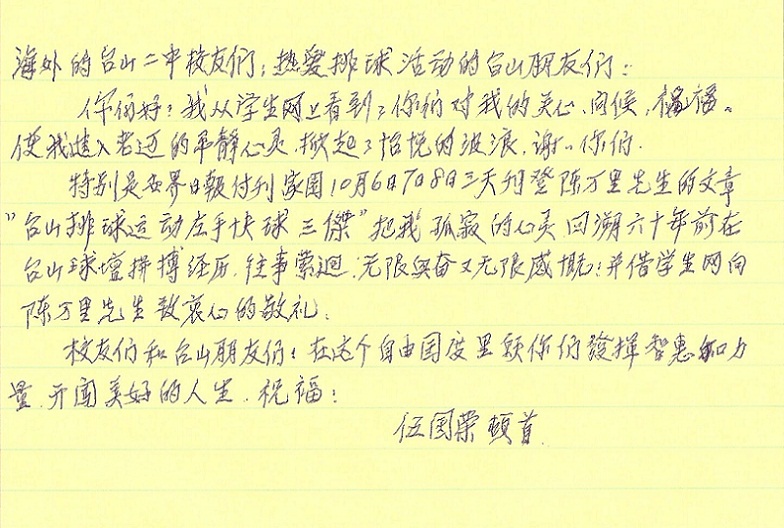 海外的台山二中校友们,热爱排球活动的台山朋友们:
你们好!我从学生网上看到了你们对我的关心、问候,祝福。
使我进入老迈的平静心灵,掀起了怡悦的波浪,谢谢你们。
特别是世界日報付刊家园10月6日7日8日三天刊登陈万里先生的文章
"台山排球运动左手快球三傑"把我孤寂的心灵回溯六十年前在
台山球壇拼搏经历,往事萦迴,无限兴奋又无限感慨!并借学生网向
陈万里先生致衷心的敬礼。
校友们和台山朋友们!在这个自由国度里颖你们發揮智惠和力
量,开闯美好的人生。祝福!
伍国荣頓首